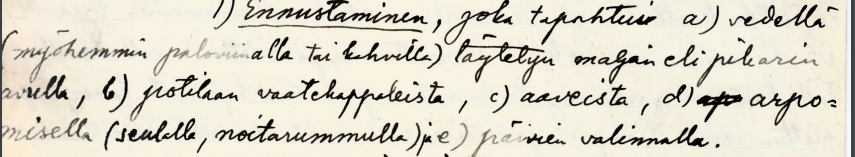 1) Ennustaminen, joka tapahtui a) vedellä
(myöhemmin paloviinalla tai kahvilla) täytetyn maljan eli pikarin
avulla, b) potilaan vaatekappaleista, c) aaveista, d) arpo=
misella (seulalla, noitarummulla) ja e) päivien valinnalla.